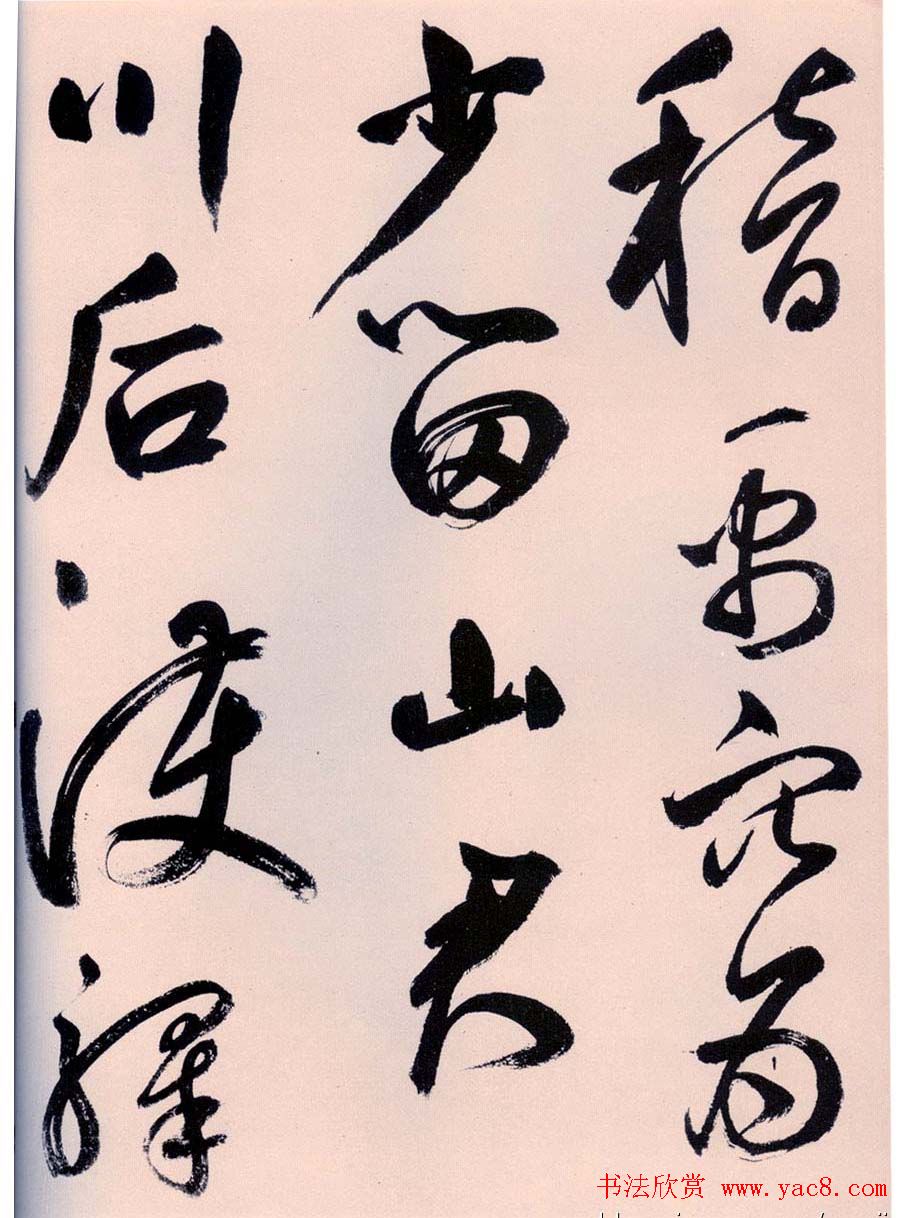 稽禹穴為
少留山君
川后護驛
书法欣赏 www.yac8.com